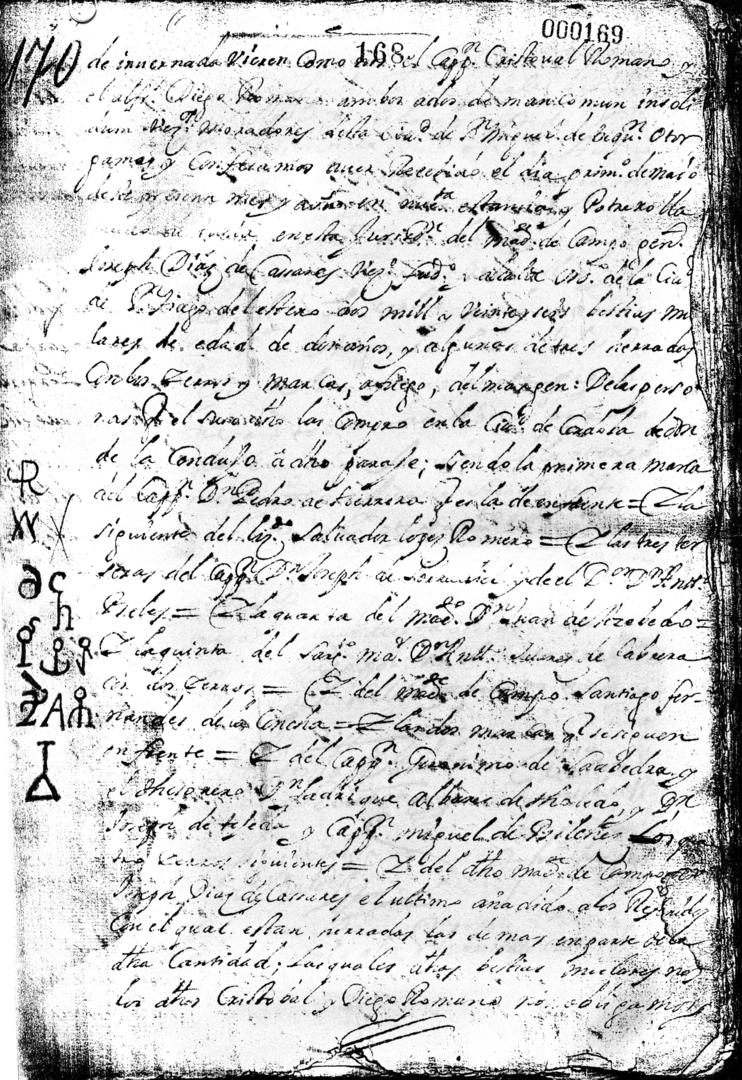 000169
170
168
de invernada Vieren Como nos el Capp.n Cristoval Romano y
el alf.z Diego Romano ambos ados de man comun insoli
dum Vez.os Moradores desta Ciu.d de S.n Miguel de Otor
gamos y Confesamos aver Recevido el dia prim.o de março
deste presente mes y año en nuestra estancia y Potrero lla
en esta Jurisd.n del maē.e de Campo gen.l
Joseph Dias de Casseres Vez.o feud.o alcalde de la Ciu.d
de S.tiago del estero dos mill y Veinte y seis bestias mu
lares de edad de dos años, y algunas de tres herradas
Con los Ferros y marcas, del margen: De las perso
nas q el suso dho las Compro en la Ciu.d de Cordova de don
de la Condujo a dho paraje; siendo la primera marca
del Capp.n D.n Pedro de Herrera q es la de enfrente = Y la
siguiente del liz.do Salvador lopes Romero = Y las tres ter
seras del Capp.n D.n Joseph de y de el D.or D.n Antt.o
= Y la quarta del mae.e D.n Juan de Azebedo =
Y la quinta del Sarg.to ma.r D.n Antt.o Suares de Cabrera
con dos Ferros = Y del mae.e de Campo Santiago fer-
nandes de la Concha = Y las dos marcas q se siguen
en frente = Y del Capp.n Geronimo de Saavedra y
el thesorero D.n fadrique albares de tholedo y D.n
Joseph de texeda y Capp.n miguel de Los qua
tro Ferros siguientes = Y del dho mae.e de Campo
Joseph Dias de Casseres el ultimo añadido a los Referidos
Con el qual estan herradas las demas en parte de la
dha Cantidad; Las quales dhas bestias mulares nos
los dhos Cristobal y Diego Romano nos obligamos